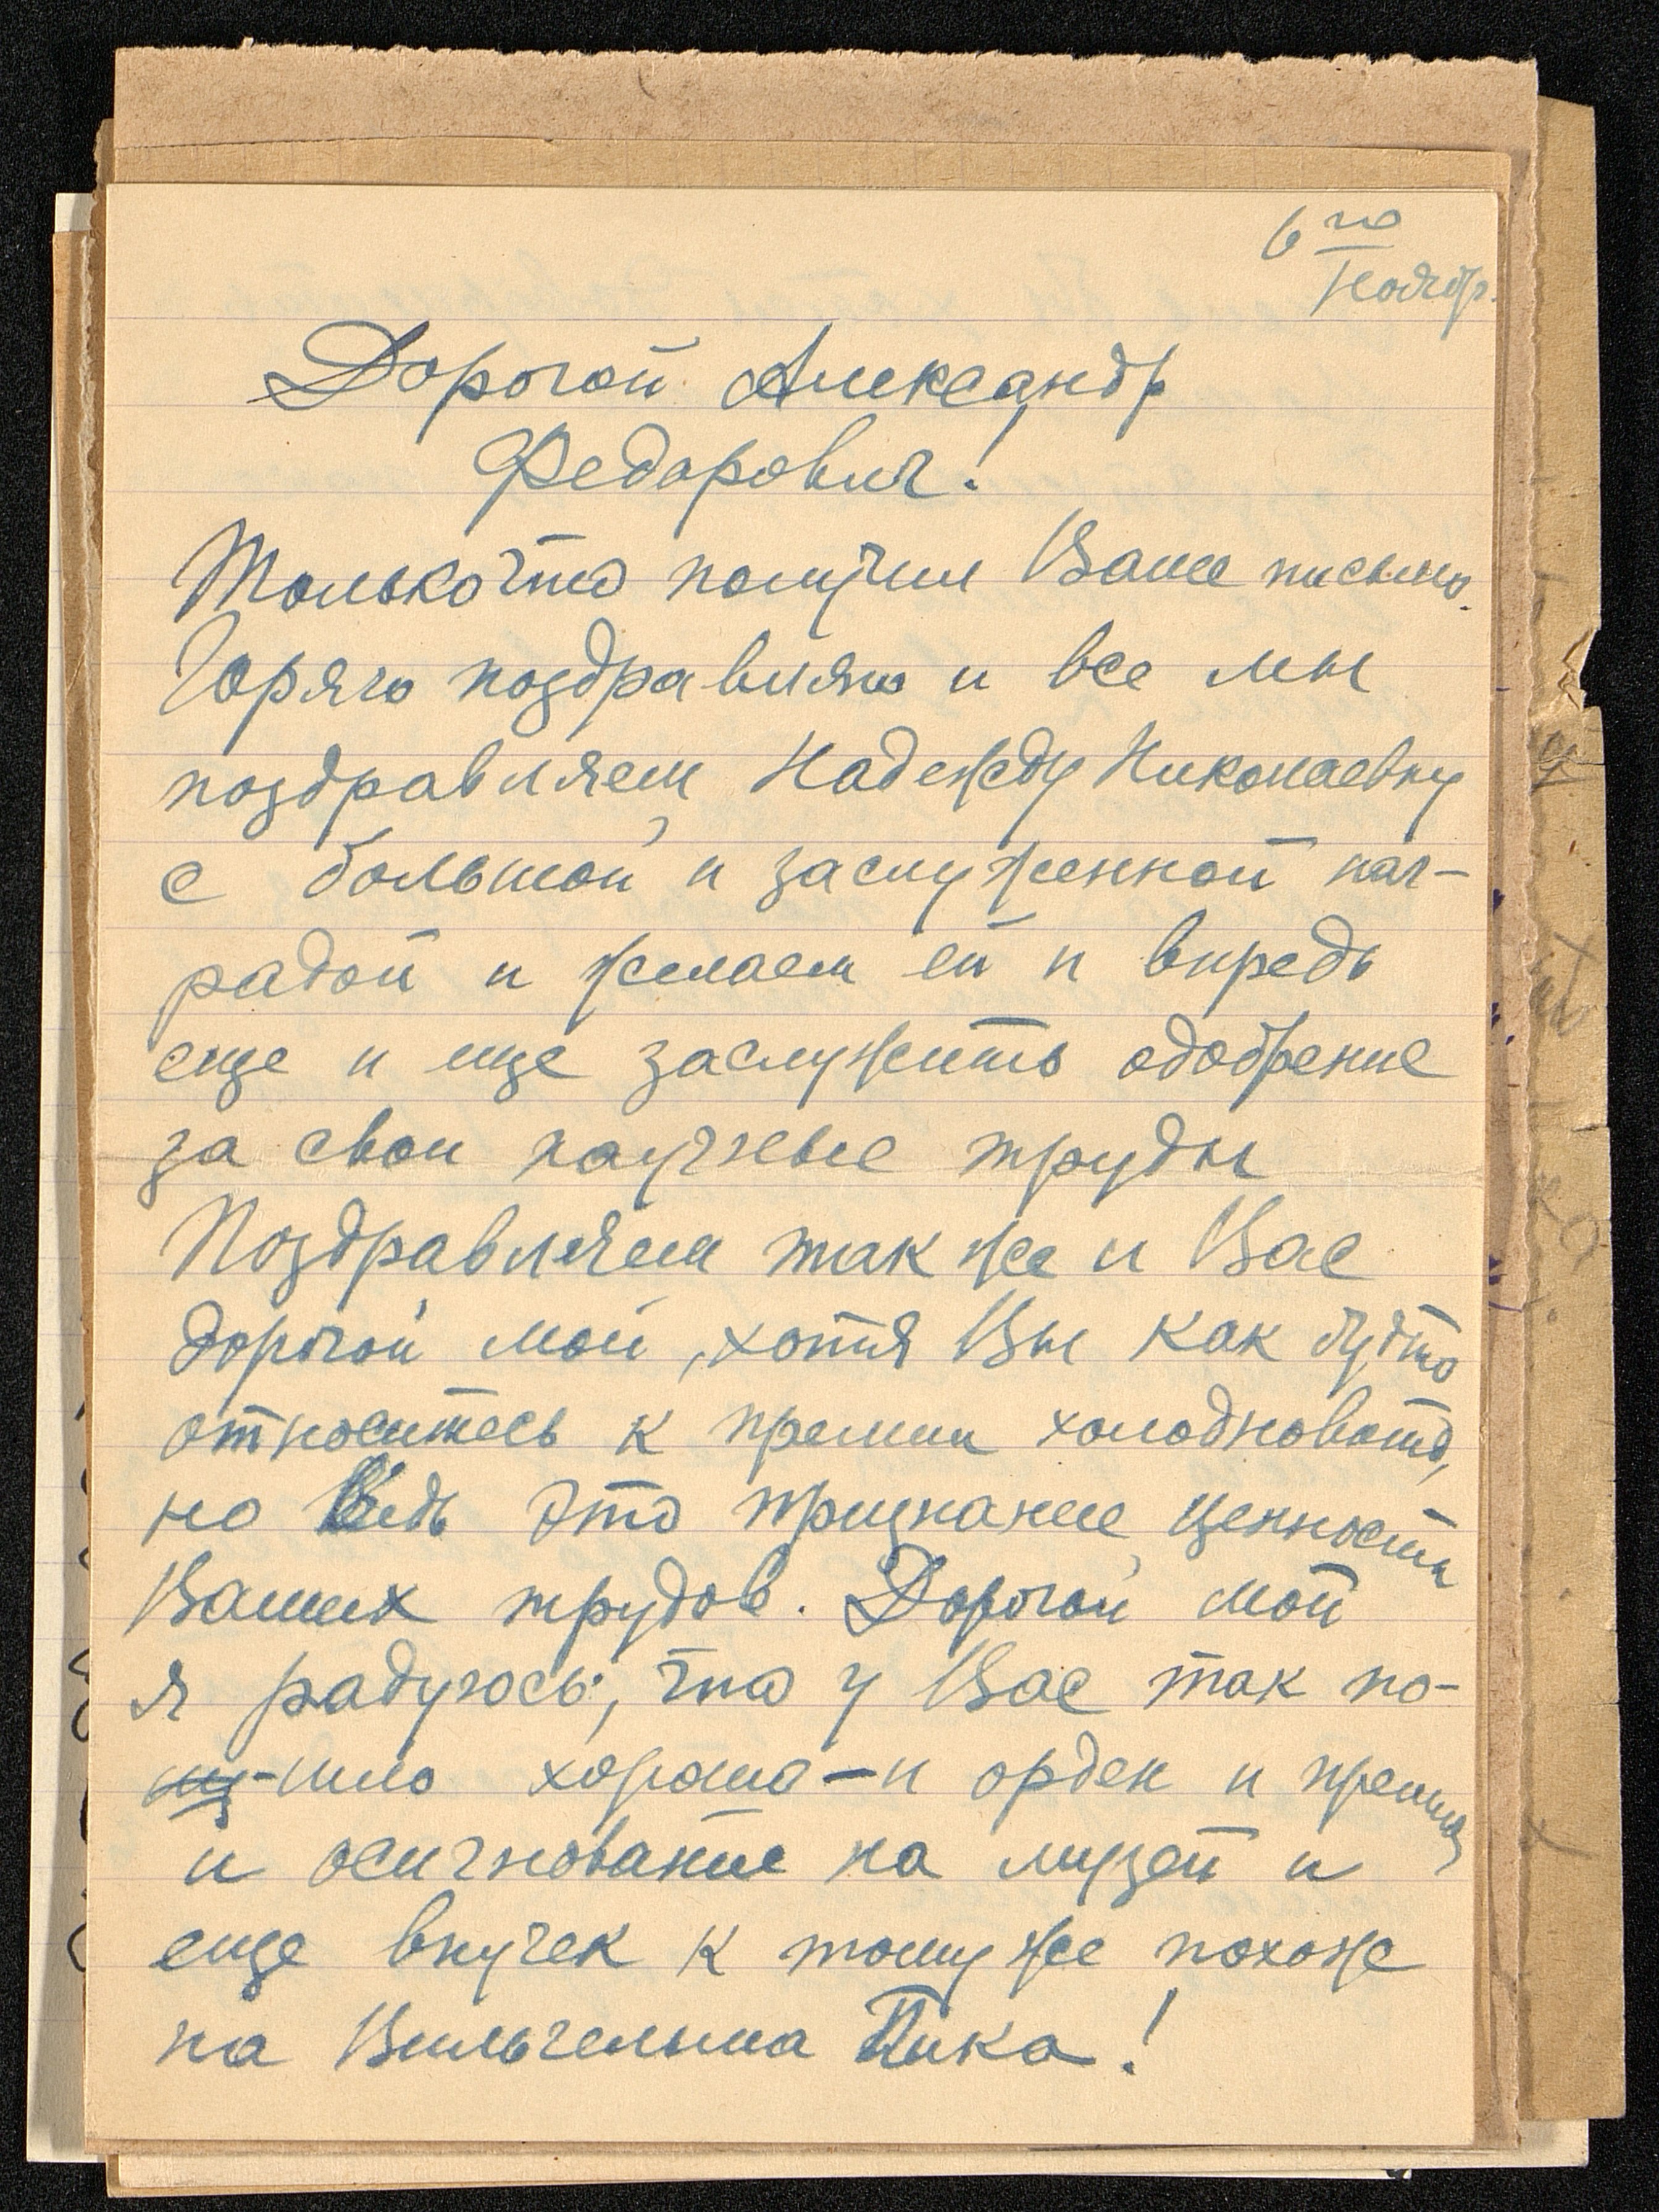 6го
Ноябр.
Дорогой Александр
Федорович!
Только что получил Ваше письмо.
Горячо поздравляю и все мы
поздравляем Надежду Николаевну
с большой и заслуженной наг-
радой и желаем ей и впредь
еще и еще заслужить одобрение
за свои научные труды
Поздравляем так же и Вас
дорогой мой, хотя Вы как будто
относитесь к премии холодновато,
но ведь это признание ценности
Ваших трудов. Дорогой мой
я радуюсь, что у Вас так по-
шло хорошо - и орден и премия
и осигнование на музей и
еще внучек к тому же похож
на Вильгельма Пика!